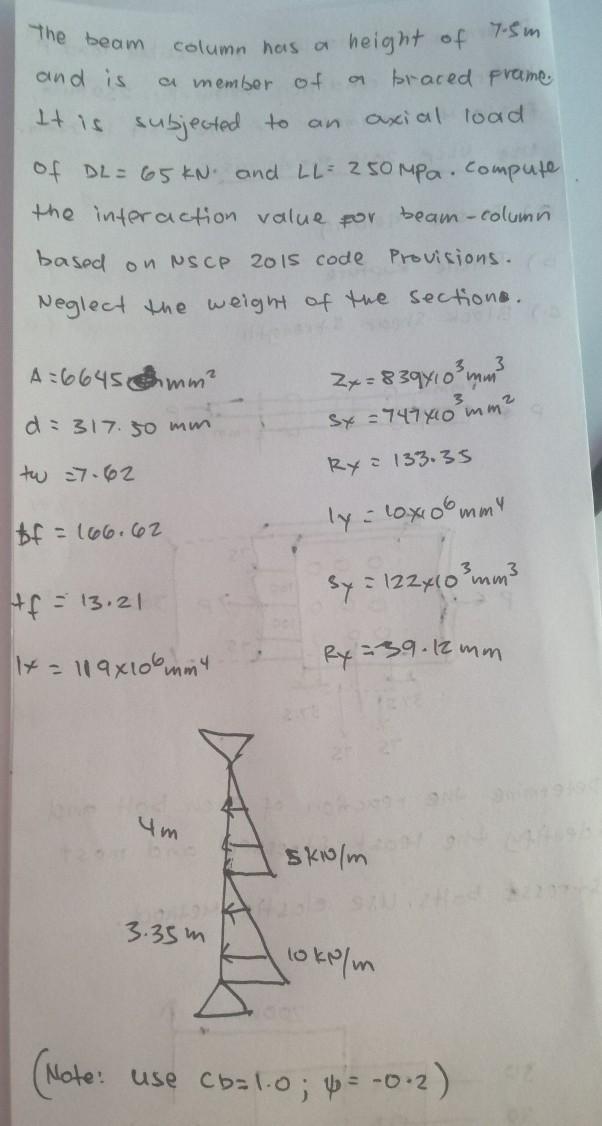 The beam column has a height of 7.5m
and is a member of a braced frame.
It is subjected to an axial load
of DL = 65 kN. and LL = 250 MPa. compute
the interaction value for beam-column
based on NSCP 2015 code Provisions.
Neglect the weight of the section.
A = 6645 mm²
d = 317.50 mm
tw = 7.62
bf = 166.62
tf = 13.21
Ix = 119x10⁶ mm⁴
Zx = 839x10³ mm³
Sx = 747x10³ mm²
Rx = 133.35
Iy = 10x10⁶ mm⁴
Sy = 122x10³ mm³
Ry = 39.12 mm
4m
5 kN/m
3.35 m
10 kN/m
(Note: use Cb=1.0; ψ = -0.2)